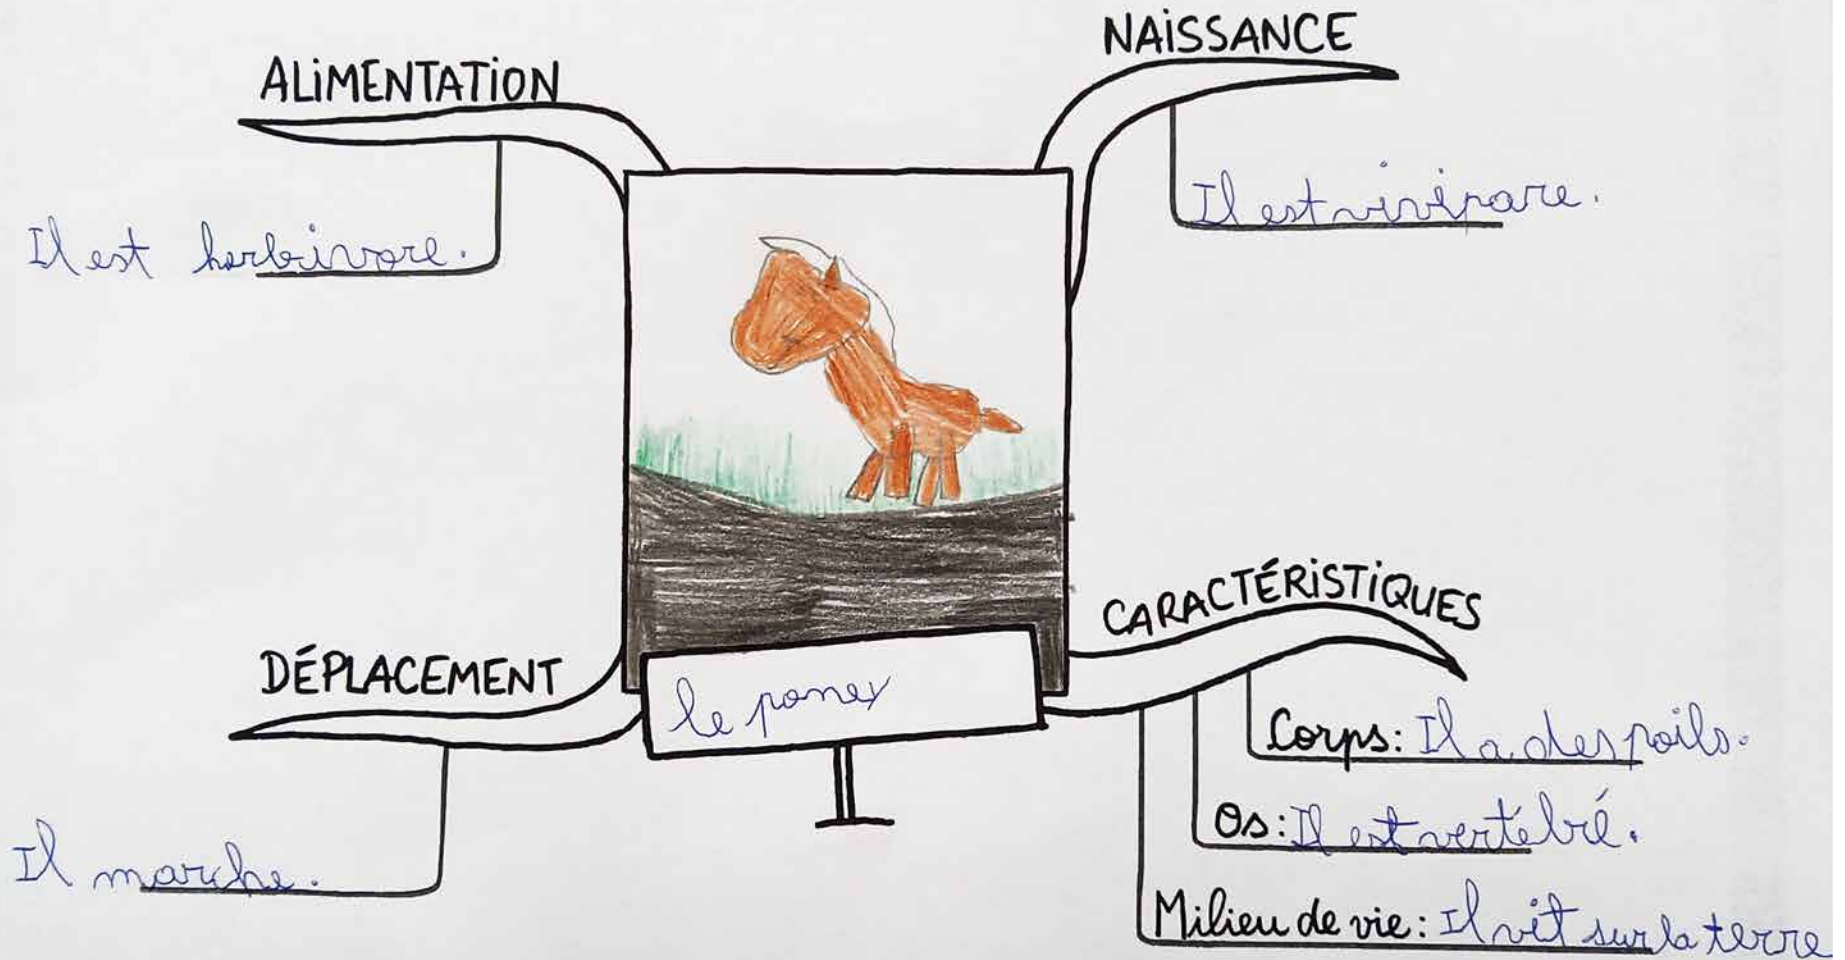 ALIMENTATION
Il est herbivore.
NAISSANCE
Il est vivipare.
DÉPLACEMENT
Il marche.
le poney
CARACTÉRISTIQUES
Corps: Il a des poils.
Os: Il est vertébré.
Milieu de vie: Il vit sur la terre